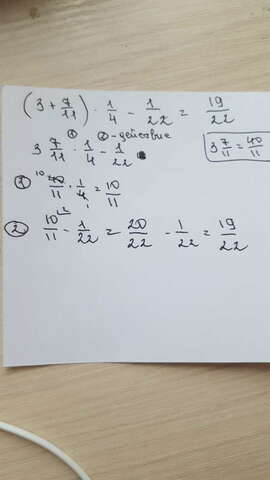 (3 + 7/11) · 1/4 − 1/22 = 19/22
① ② - действие
3 7/11 · 1/4 − 1/22
3 7/11 = 40/11
① 10 40/11 · 1/4 1 = 10/11
② 10/11 \2 − 1/22 = 20/22 − 1/22 = 19/22